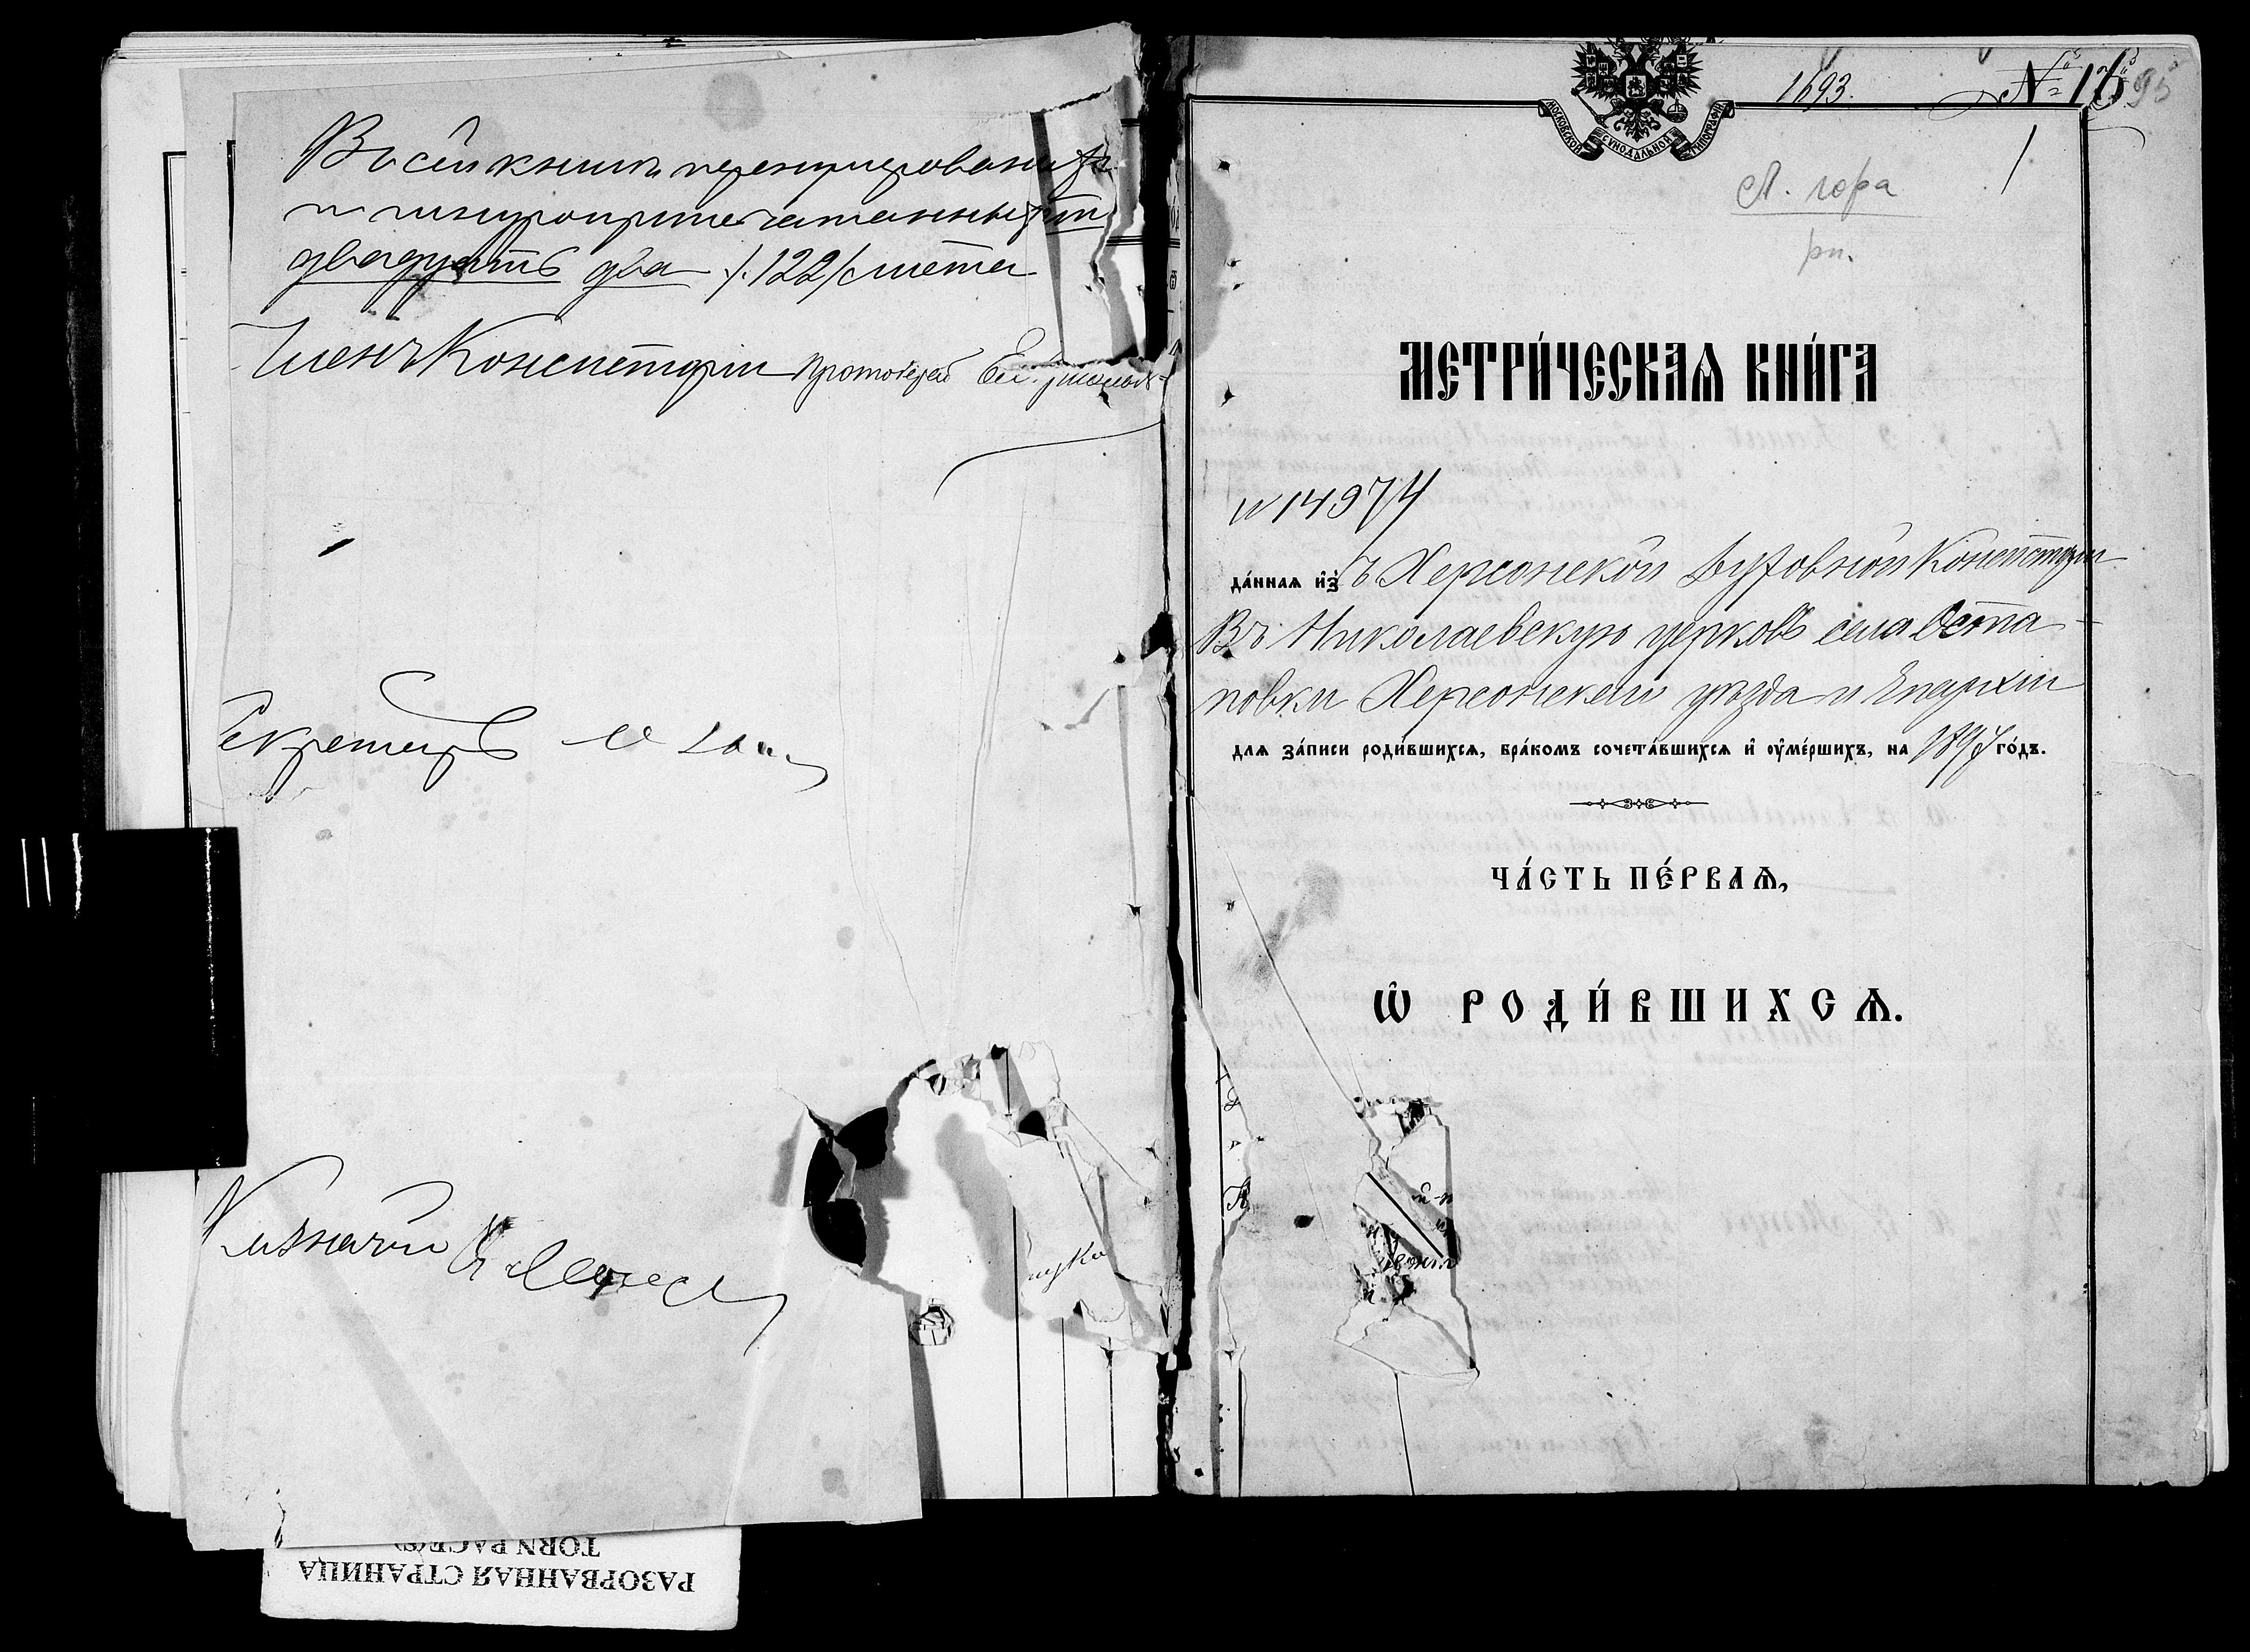 Въ сей книгѣ перенумерованныхъ
и шнуроприпечатанныхъ
двадцать два /122/ листа
Членъ Консисторіи Протоіерей
Секретарь
Казначей
МОСКОВСКОЙ СѴНОДАЛЬНОЙ ТИПОГРАФІИ
1693.
1
А. гора
рп.
МЕТРИ́ЧЕСКАѦ КНИ́ГА
N 14974
да́ннаѧ и҆зъ Херсонской Духовной Консисторіи
Въ Николаевскую церковь села Оста-
повки Херсонскаго уѣзда и Епархіи
для за́писи роди́вшихсѧ, бра́комъ сочета́вшихсѧ и҆ ᲂу҆ме́ршихъ, на 1897 го́дъ.
ЧА́СТЬ ПЕ́РВАѦ,
Ѡ҆ РОДИ́ВШИХСѦ.
РАЗОРВАННАЯ СТРАНИЦА
TORN PAGE(S)